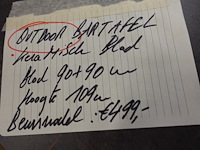 OUTDOOR BARTAFEL
• KeraMisch Blad
Blad 90+90 cm
Hoogte 109cm
Beursmodel : €499,-